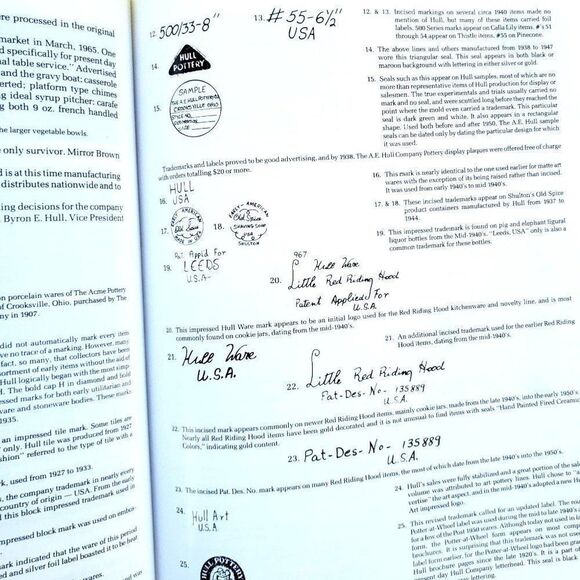 re processed in the original
market in March, 1965. One
d specifically for present day
al table service." Advertised
and the gravy boat; casserole
erted; platform type chimes
ng ideal syrup pitcher; carafe
g both 9 oz. french handled
he larger vegetable bowls.
only survivor. Mirror Brown
d is at this time manufacturing
distributes nationwide and to
king decisions for the company
. Byron E. Hull, Vice President
n porcelain wares of The Acme Pottery
of Crooksville, Ohio, purchased by The
ny in 1907.
did not automatically mark every item
ve no trace of a marking. However, many
fact, so many, that collectors have been
ortment of early items without the aid of
Hull logically began with the most simp-
H. The bold cap H in diamond and bold
ressed marks for both early utilitarian and
ware and stoneware bodies. These marks
1935.
an impressed tile mark. Some tiles are
" only. Hull tile was produced from 1927
shion" referred to the type of tile with a
k, used from 1927 to 1933.
s, the company trademark in nearly every
country of origin — USA. From the early
d this block impressed trademark used in
mpressed block mark was used on embos-
mark indicated that the ware of this period
d and silver foil label boasted it to be heat
wares. These was
12. 500/33-8"
13. #55-6½"
USA
12. & 13. Incised markings on several circa 1940 items made no
mention of Hull, but many of these items carried foil
labels. 500 Series marks appear on Calla Lily items, #'s 51
through 54 appear on Thistle items. #55 on Pinecone.
14.
HULL
POTTERY
14. The above lines and others manufactured from 1938 to 1947
wore this triangular seal. This seal appears in both black or
maroon background with lettering in either silver or gold.
15.
SAMPLE
THE A.E. HULL POTTERY CO.
CROOKSVILLE OHIO
STYLE NO.
15. Seals such as this appear on Hull samples, most of which are no
more than representative items of Hull production for display or
salesmen. The true experimentals and trials usually carried no
mark and no seal, and were scuttled long before they reached the
point where the mold even carried a trademark. This particular
seal is dark green and white. It also appears in a rectangular
shape. Used both before and after 1950. The A.E. Hull sample
seals can be dated only by dating the particular design for which
it was used.
Trademarks and labels proved to be good advertising, and by 1938. The A.E. Hull Company Pottery display plaques were offered free of charge
with orders totalling $20 or more.
HULL
16. USA
16. This mark is nearly identical to the one used earlier for matte
wares with the exception of its being raised rather than incised.
It was used from early 1940's to mid 1940's.
17.
EARLY - AMERICAN
Old Spice
MADE IN USA
18.
EARLY - AMERICAN
Old Spice
SHAVING SOAP
USA
SHULTON
17. & 18. These incised trademarks appear on Shulton's Old Spice
product containers manufactured by Hull from 1937 to
1944.
Pat. Appl'd For
19. LEEDS
U.S.A-
19. This impressed trademark is found on pig and elephant figural
liquor bottles from the Mid-1940's. "Leeds, USA" only is also a
common trademark for these bottles.
967
Hull Ware
20. Little Red Riding Hood
Patent Applied For
U.S.A.
20. This impressed Hull Ware mark appears to be an initial logo used for the Red Riding Hood kitchenware and novelty line, and is most
commonly found on cookie jars, dating from the mid-1940's.
21. Hull Ware
U.S.A.
21. An additional incised trademark used for the earlier Red Riding
Hood items, dating from the mid-1940's.
22. Little Red Riding Hood
Pat-Des-No- 135889
U.S.A.
22. This incised mark appears commonly on newer Red Riding Hood items, mainly cookie jars, made from the late 1940's, into the early 1950's
Nearly all Red Riding Hood items have been gold decorated and it is not unusual to find items with seals "Hand Painted Fired Ceramic
Colors," indicating gold content.
23. Pat-Des-No- 135889
U.S.A.
23. The incised Pat. Des. No. mark appears on many Red Riding Hood items, the most of which date from the late 1940's into the 1950's.
24.
Hull Art
U.S.A.
24. Hull's sales were fully stabilized and a great portion of the sales
volume was attributed to art pottery lines. Hull chose to "a
vertise" the art aspect, and in the mid-1940's adopted a new H
Art impressed logo.
25.
HULL POTTERY
25. This revised trademark called for an updated label. The round
Potter-at-Wheel label was used during the mid to late 1940's a
for a few of the Post 1950 wares. Although today not used in l
form, the Potter-at-Wheel form appears on most com
brochures. It is surprising that this mark was not used
label form earlier, for the Potter-at-Wheel logo had been gra
Hull brochure pages since the late 1920's. It is also on p
day Hull Pottery Company letterhead. This seal is black